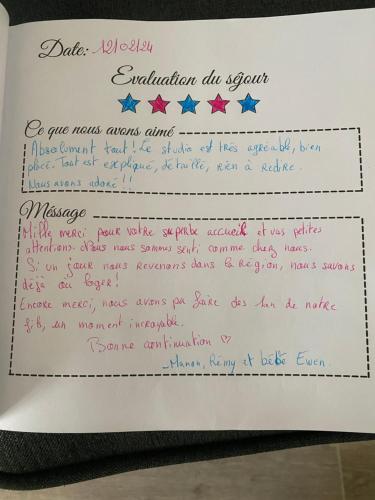 Date: 12/02/24
Evaluation du séjour
Ce que nous avons aimé
Absolument tout! Le studio est très agréable, bien
placé. Tout est expliqué, détaillé, rien à redire.
Nous avons adoré!!
Méssage
Mille merci pour votre superbe accueil et vos petites
attentions. Nous nous sommes senti comme chez nous.
Si un jour nous revenons dans la Région, nous savons
déjà où loger!
Encore merci, nous avons pu faire des 1an de notre
fils, un moment incroyable.
Bonne continuation ♡
Manon, Rémy et bébé Ewen.